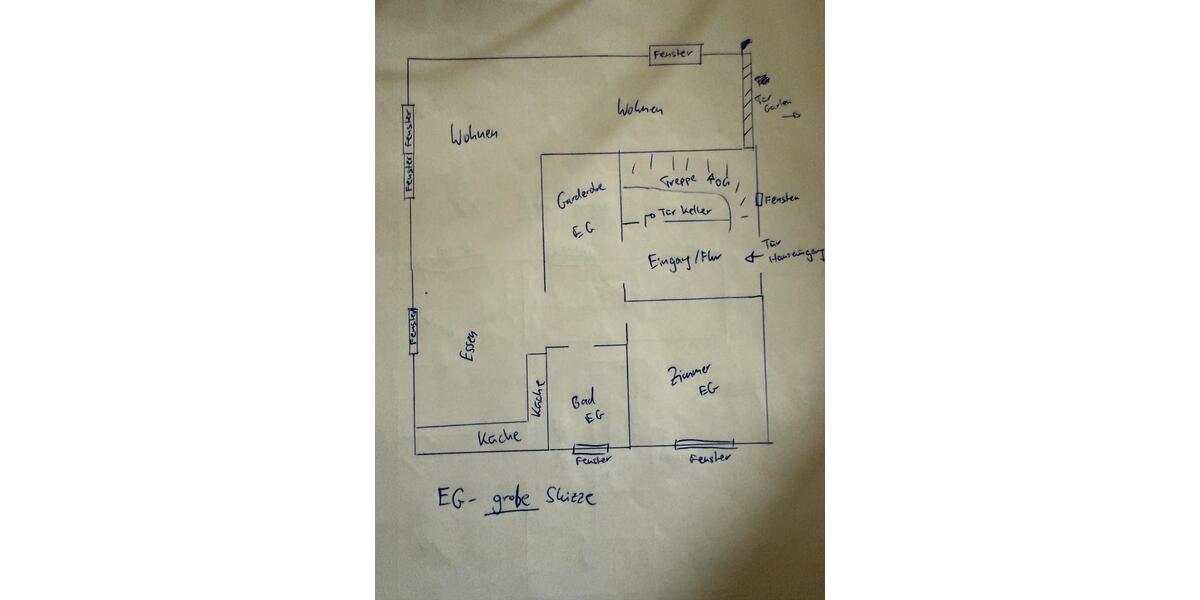 Fenster
Tür
Garten
Wohnen
Wohnen
Fenster
Fenster
Garderobe
EG
Treppe OG
Tür Keller
Fenster
Eingang/Flur
Tür
Hauseingang
Fenster
Essen
Küche
Küche
Bad
EG
Zimmer
EG
Fenster
Fenster
EG - grobe Skizze